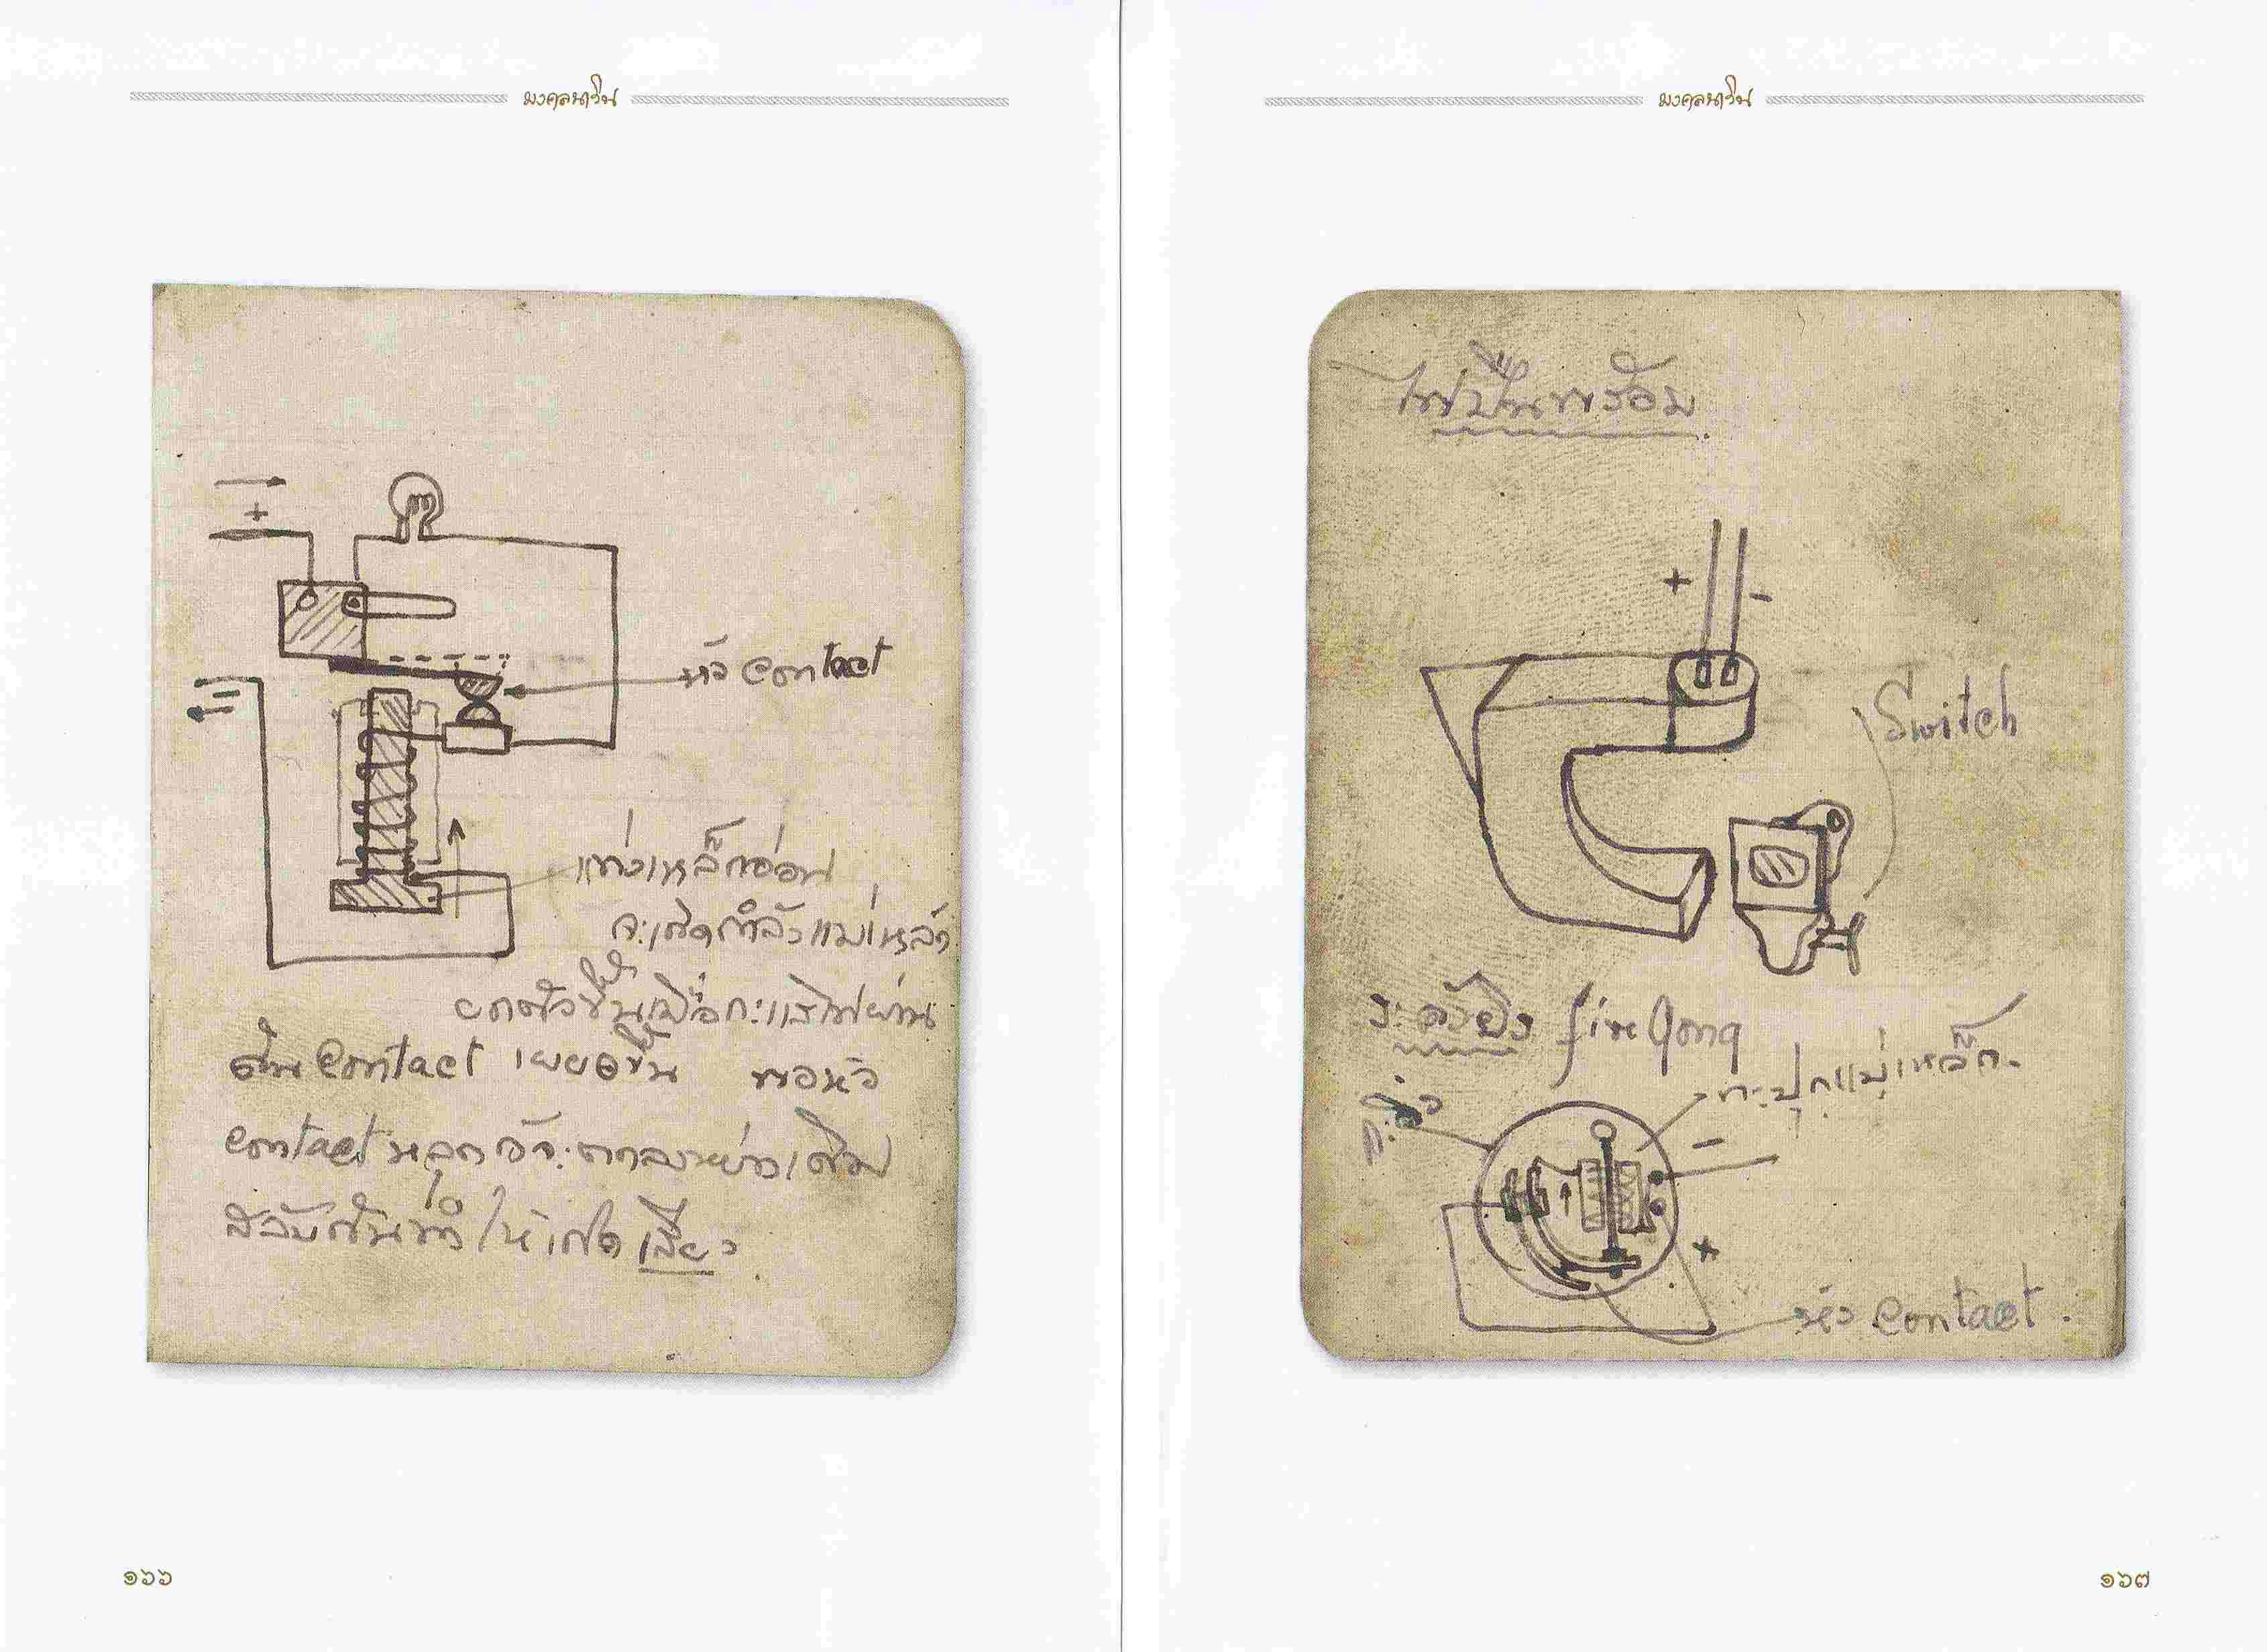 มงคลนาวิน
+
หัว contact
แท่งเหล็กอ่อน
จะเกิดกำลังแม่เหล็ก
ยกตัวขึ้นเมื่อกะแสไฟผ่าน
contact เผยอขึ้น พอหัว
contact หลุด ก็จะตกลงมาอย่างเดิม
สลับกันทำให้เกิดเสียง
๑๖๖
มงคลนาวิน
ไฟปืนพร้อม
+ -
Switch
ระฆังยิง fire Gong
กะปุกแม่เหล็ก
-
+
หัว contact.
๑๖๗